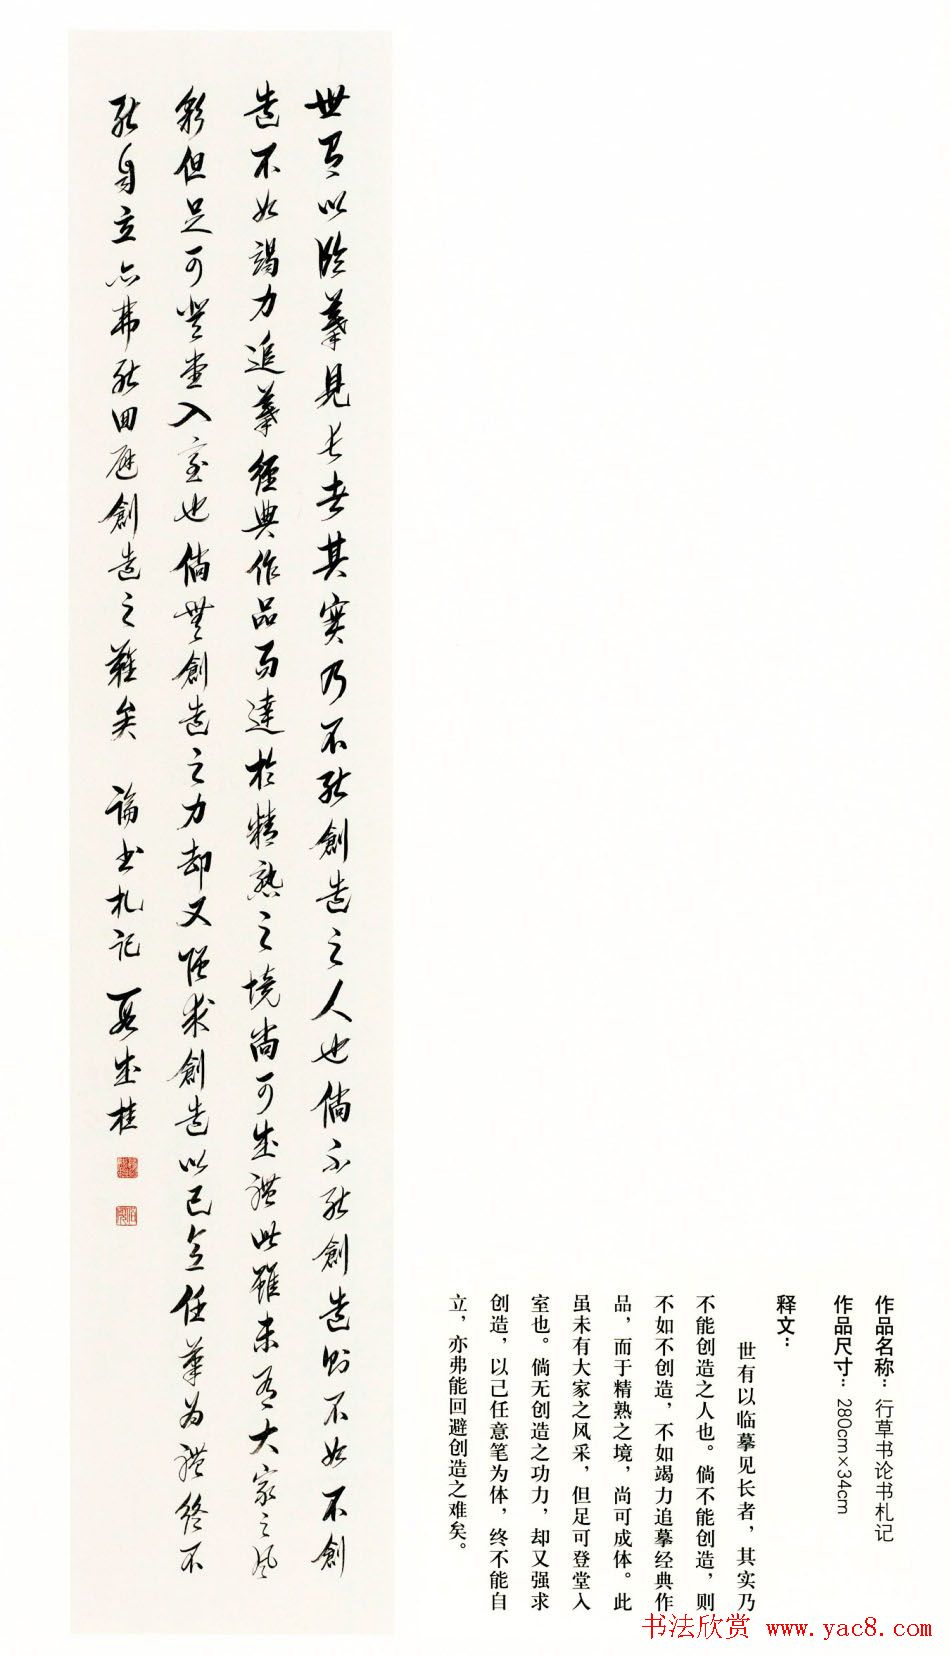 世有以临摹見长者其实乃不能創造之人也倘不能創造則不如不創
造不如竭力追摹經典作品而達於精熟之境尚可成體此雖未有大家之风
彩但足可登堂入室也倘無創造之力却又强求創造以己意任筆為體終不
能自立亦弗能回避創造之難矣 论书札记
作品名称：行草书论书札记
作品尺寸：280cm×34cm
释文：
世有以临摹见长者，其实乃
不能创造之人也。倘不能创造，则
不如不创造，不如竭力追摹经典作
品，而于精熟之境，尚可成体。此
虽未有大家之风采，但足可登堂入
室也。倘无创造之功力，却又强求
创造，以己任意笔为体，终不能自
立，亦弗能回避创造之难矣。
书法欣赏 www.yac8.com